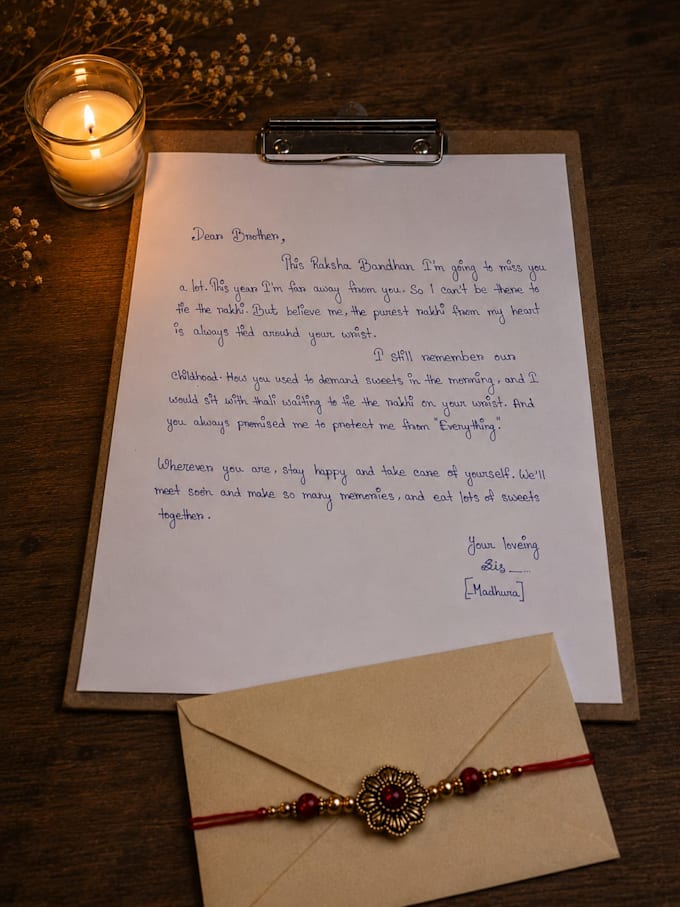 Dear Brother,
This Raksha Bandhan I'm going to miss you
a lot. This year I'm far away from you. So I can't be there to
tie the rakhi. But believe me, the purest rakhi from my heart
is always tied around your wrist.
I still remember our
childhood. How you used to demand sweets in the morning, and I
would sit with thali waiting to tie the rakhi on your wrist. And
you always promised me to protect me from "Everything".
Wherever you are, stay happy and take care of yourself. We'll
meet soon and make so many memories, and eat lots of sweets
together.
Your loveing
Sis __...
[-Madhura]